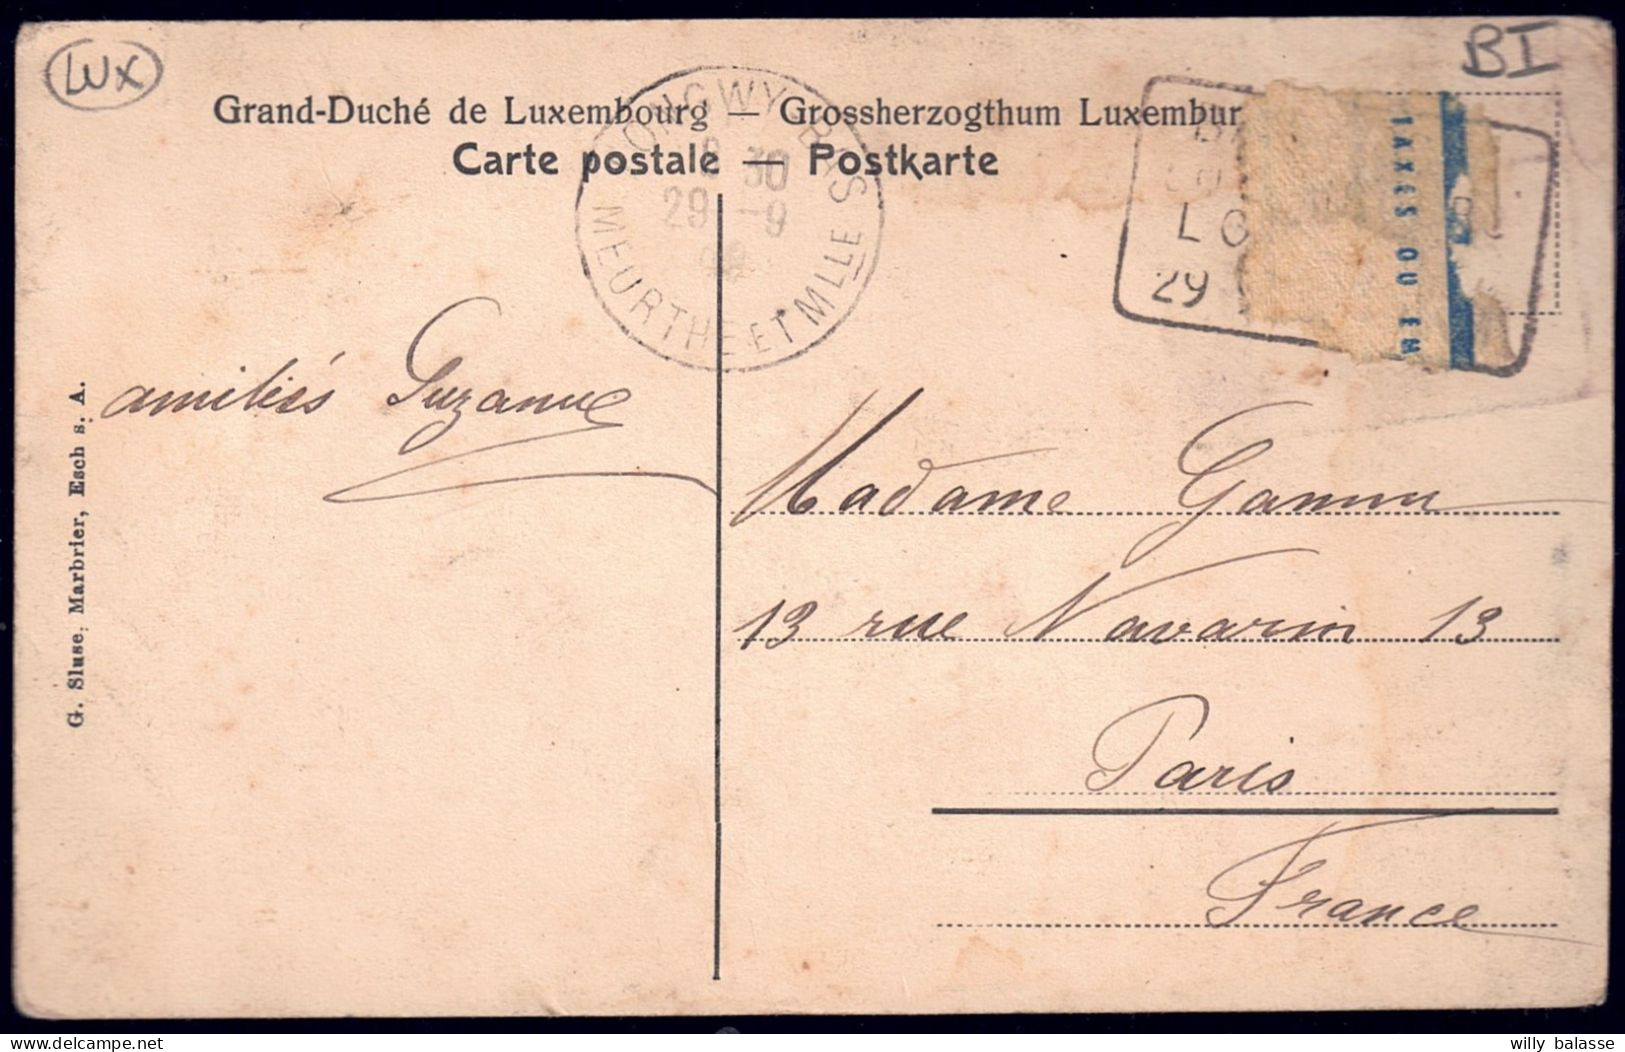 LUX
BI
Grand-Duché de Luxembourg — Grossherzogthum Luxembur
Carte postale — Postkarte
LONGWY BAS
8 30
29 -9
MEURTHE ET MLLE
29
TAXES OU EM
amitiés Suzanne
G. Sluse, Marbrier, Esch s. A.
Madame
13 rue Navarin 13
Paris
France
willy balasse